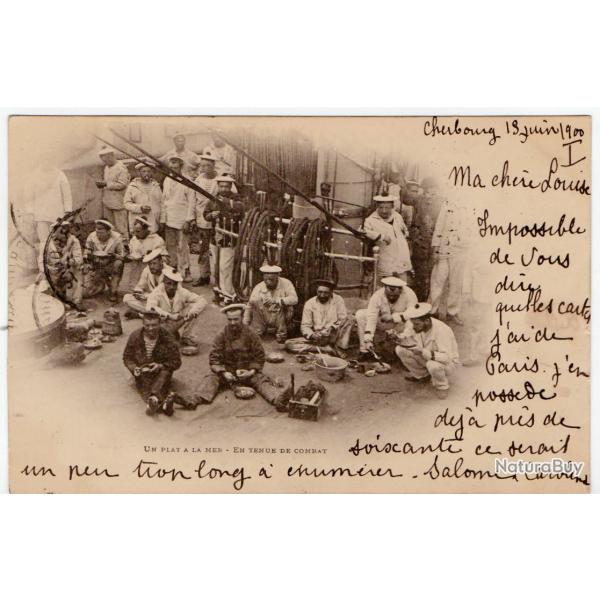 Cherbourg 13 juin 1900
I
Ma chère Louise
Impossible
de vous
dire
quelles cartes
j'ai de
Paris. j'en
possède
déjà près de
soixante ce serait
un peu trop long à énumérer - Salomé
UN PLAT A LA MER - EN TENUE DE COMBAT
NaturaBuy